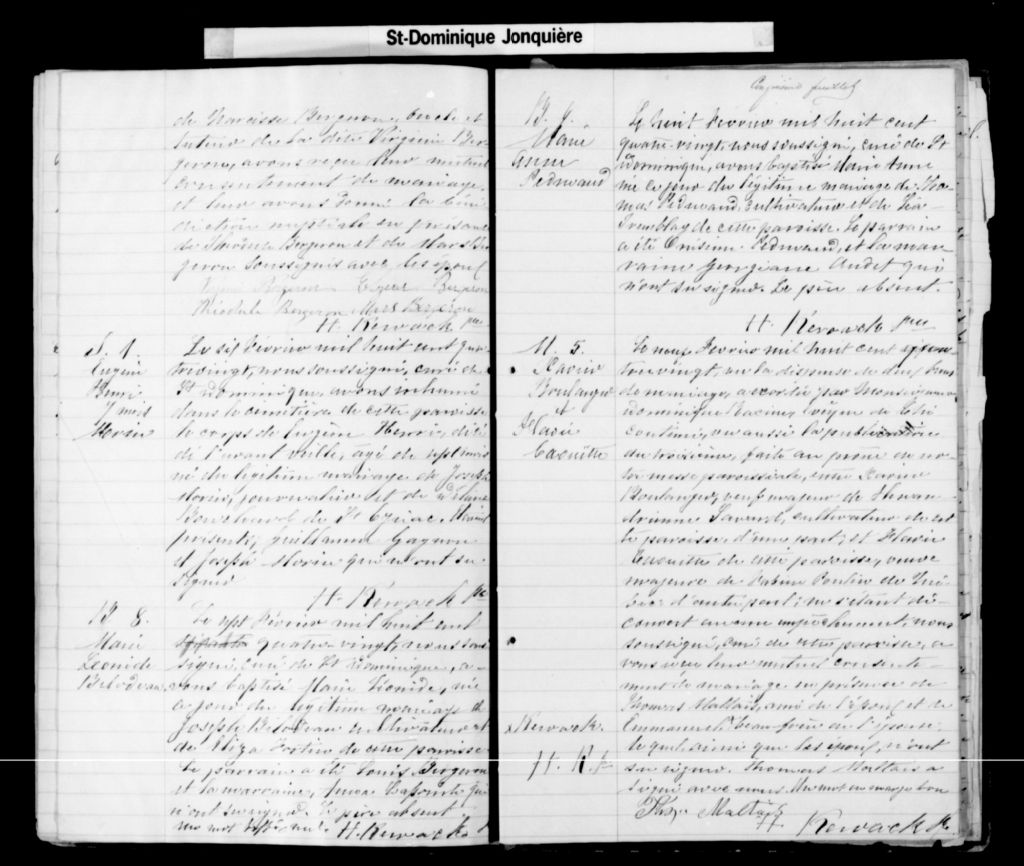 St-Dominique Jonquière
de Narcisse Bergeron, oncle et
tuteur de la dite Virginie Ber
geron, avons reçu leur mutuel
consentement de mariage
et leur avons donné la béné
diction nuptiale en présence
de Théodule Bergeron et de Mars Ber
geron soussignés avec les époux
Bergeron Bergeron
Théodule Bergeron Mars Bergeron
H. Kérouack ptre
S. 1.
Eugène
Henri
7 mois
Morin
Le six Février mil huit cent qua
trevingt, nous soussigné, curé de
St Dominique, avons inhumé
dans le cimetière de cette paroisse
le corps de Eugène Henri, décédé
de l'avant veille, agé de sept mois
né du légitime mariage de Joseph
Morin, journalier et de
Bouchard de St Cyriac. Etaient
présents, Guillaume Gagnon
et Joseph Morin qui n'ont su
signer
H. Kérouack Ptre
B 8.
Marie
Léonide
Bilodeau
Le sept Février mil huit cent
quatre-vingt, nous sous
signé, curé de St Dominique, a-
vons baptisé Marie Léonide, née
ce jour du légitime mariage de
Joseph Bilodeau cultivateur et
de Eliza Fortier de cette paroisse
Le parrain a été Louis Bergeron
et la marraine, Laforest qui
n'ont su signer. Le père absent.
un mot H. Kérouack Ptre
feuillet
B. 9.
Marie
Anne
Pedneaud
Le huit Février mil huit cent
quatre-vingt, nous soussigné, curé de St
Dominique, avons baptisé Marie Anne
née ce jour du légitime mariage de Tho-
mas Pedneaud, cultivateur et de Léa
Tremblay de cette paroisse. Le parrain
a été Onésime Pedneaud, et la mar
raine Georgiane Audet qui
n'ont su signer. Le père absent.
H. Kérouack Ptre
M. 5.
Xavier
Boulanger
et
Flavie
Caouette
Le neuf Février mil huit cent
trevingt, vu la dispense de deux bans
de mariage, accordée par Monseigneur
Dominique Racine, évêque de Chi
coutimi, vu aussi la publication
du troisième, faite au prône de no-
tre messe paroissiale, entre Xavier
Boulanger, veuf majeur de
Savard, cultivateur de cet
te paroisse, d'une part; et Flavie
Caouette de cette paroisse, veuve
majeure de Fabien Cloutier de Qué
bec d'autre part; ne s'étant dé-
couvert aucun empêchement, nous
soussigné, curé de cette paroisse, a
vons reçu leur mutuel consente-
ment de mariage en présence de
Thomas Maltais, ami de l'époux et de
Emmanuel beau-frère de l'épouse
lequel ainsi que les époux, n'ont
su signer. Thomas Maltais a
signé avec nous. Un mot en marge bon
x Kérouack.
H. K. Ptre
Maltais
H. Kérouack Ptre